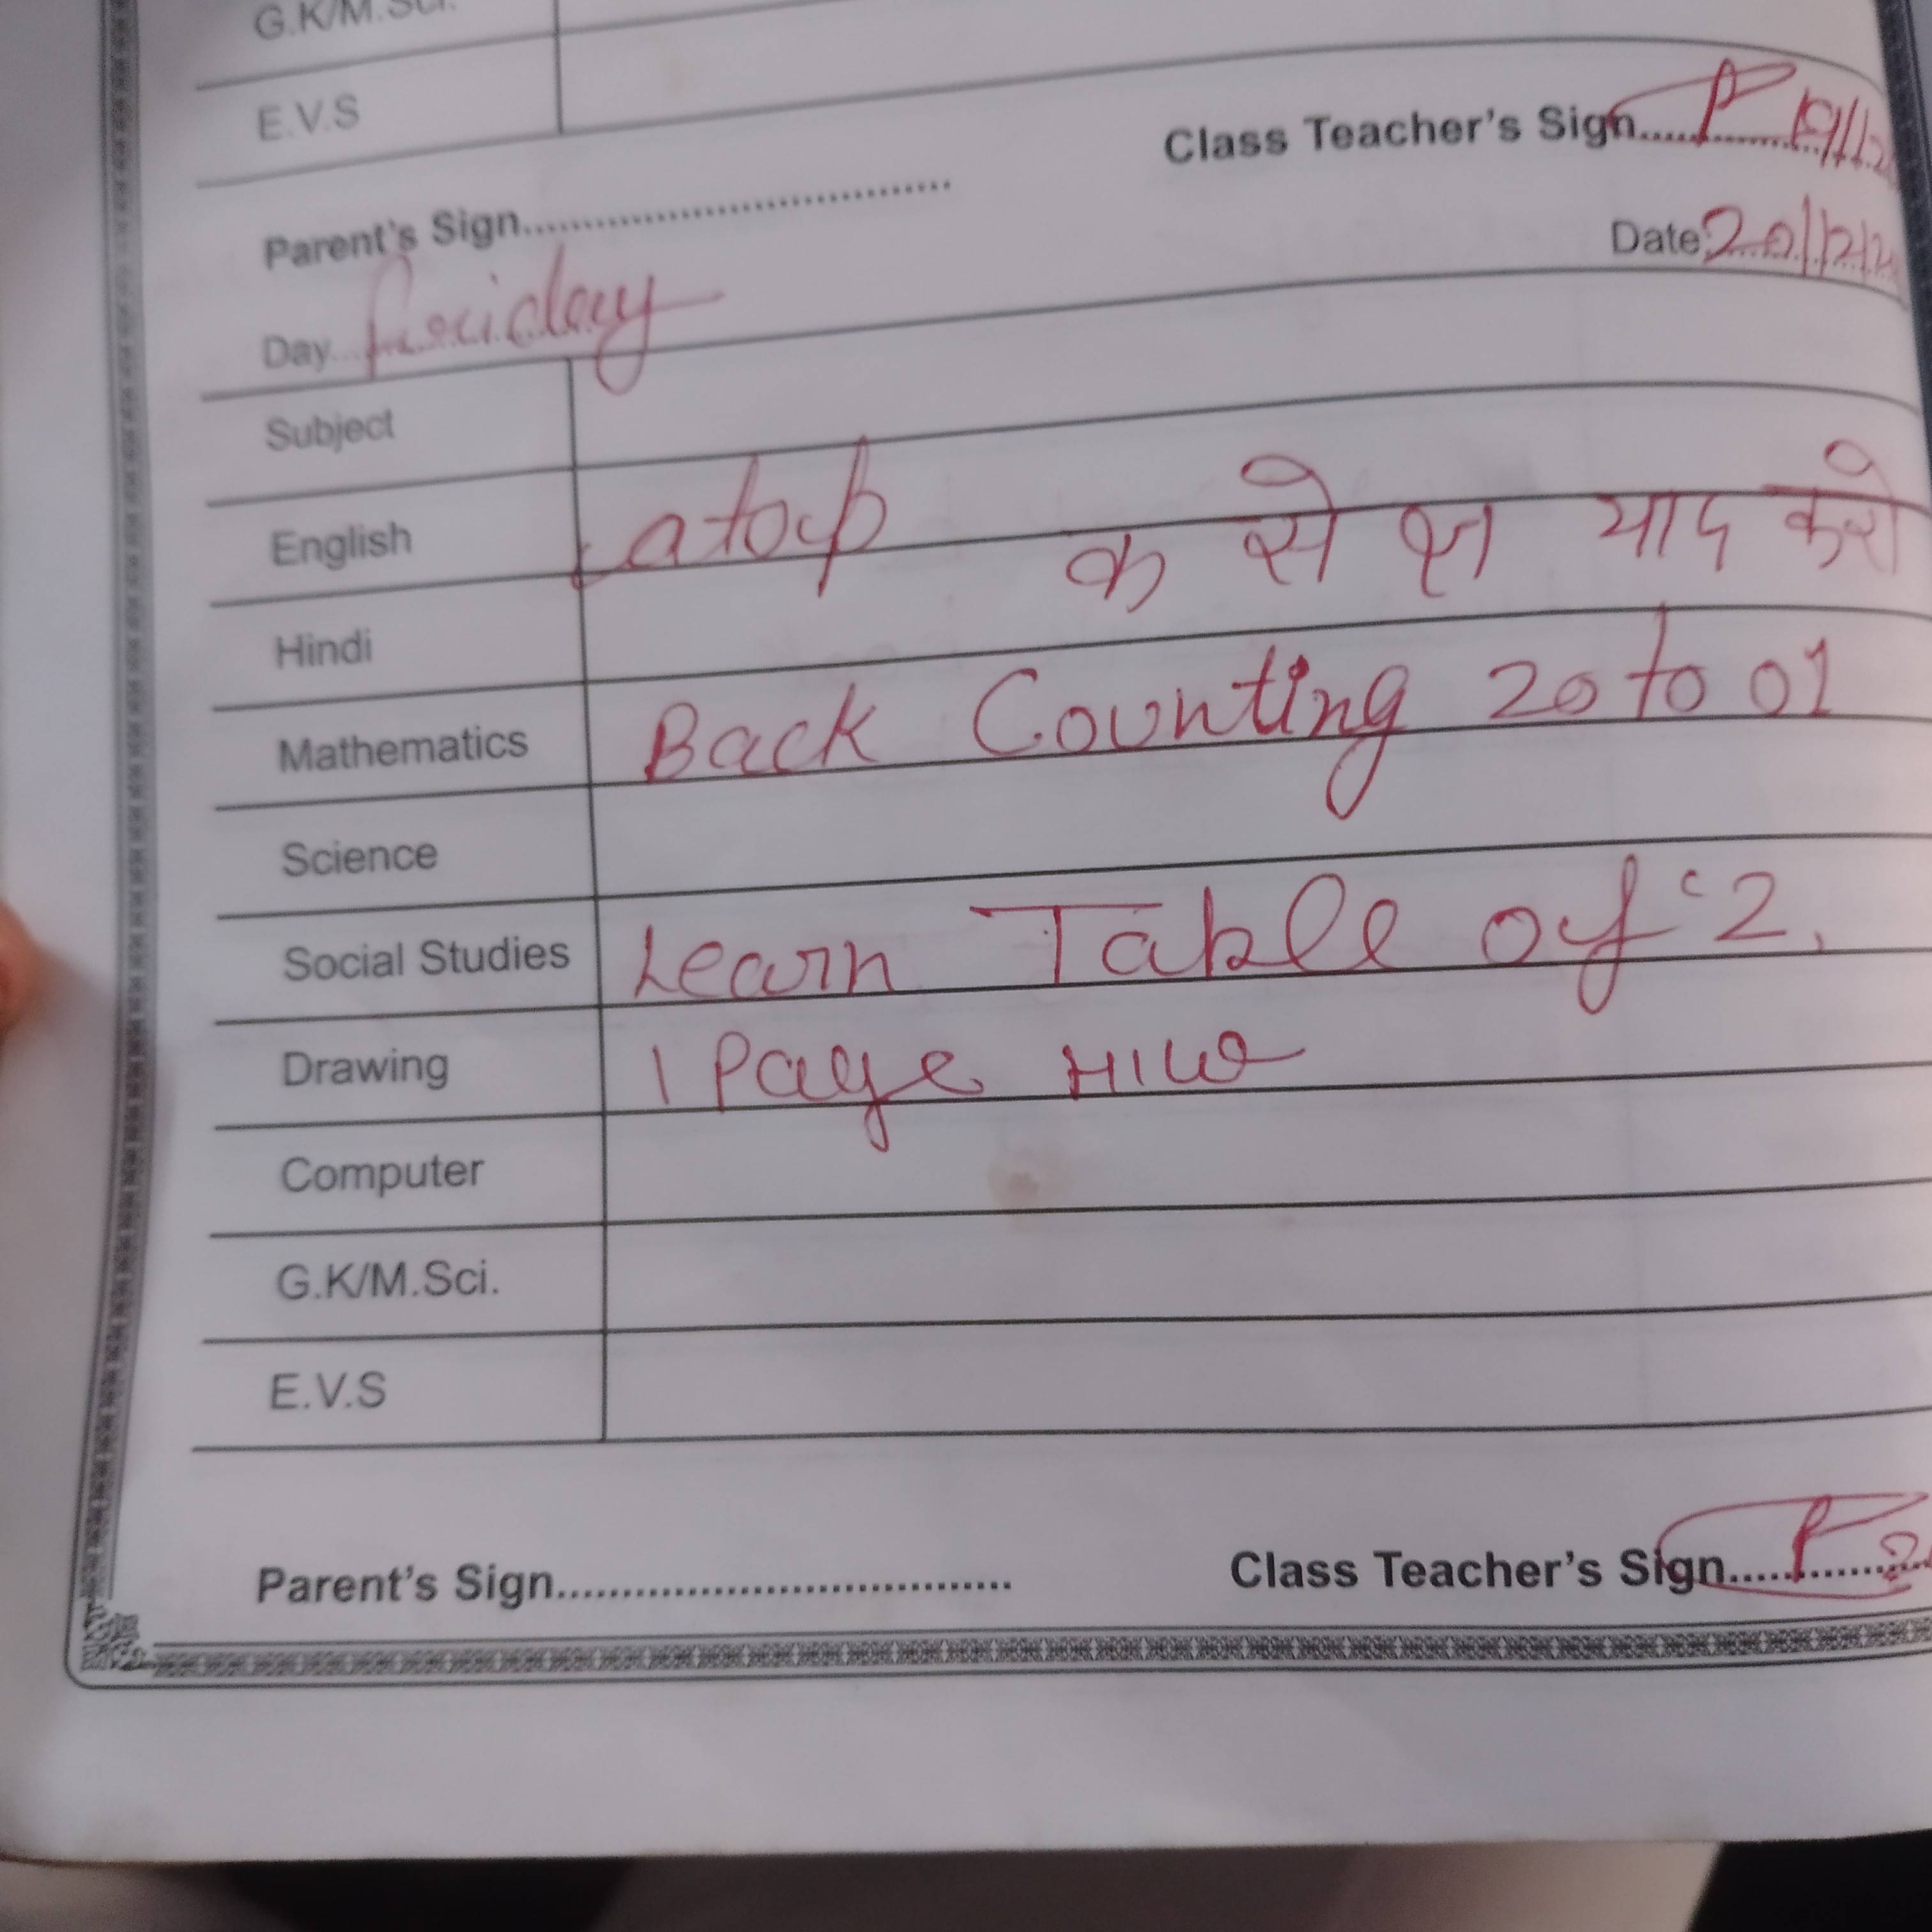 G.K/M.Sci.
E.V.S
Class Teacher's Sign
Parent's Sign
Date 20/12/2
Day Friday
Subject
English a to p क से ज्ञ याद करो
Hindi
Mathematics Back Counting 20 to 01
Science
Social Studies Learn Table of '2,
Drawing 1 Page H/W
Computer
G.K/M.Sci.
E.V.S
Parent's Sign
Class Teacher's Sign